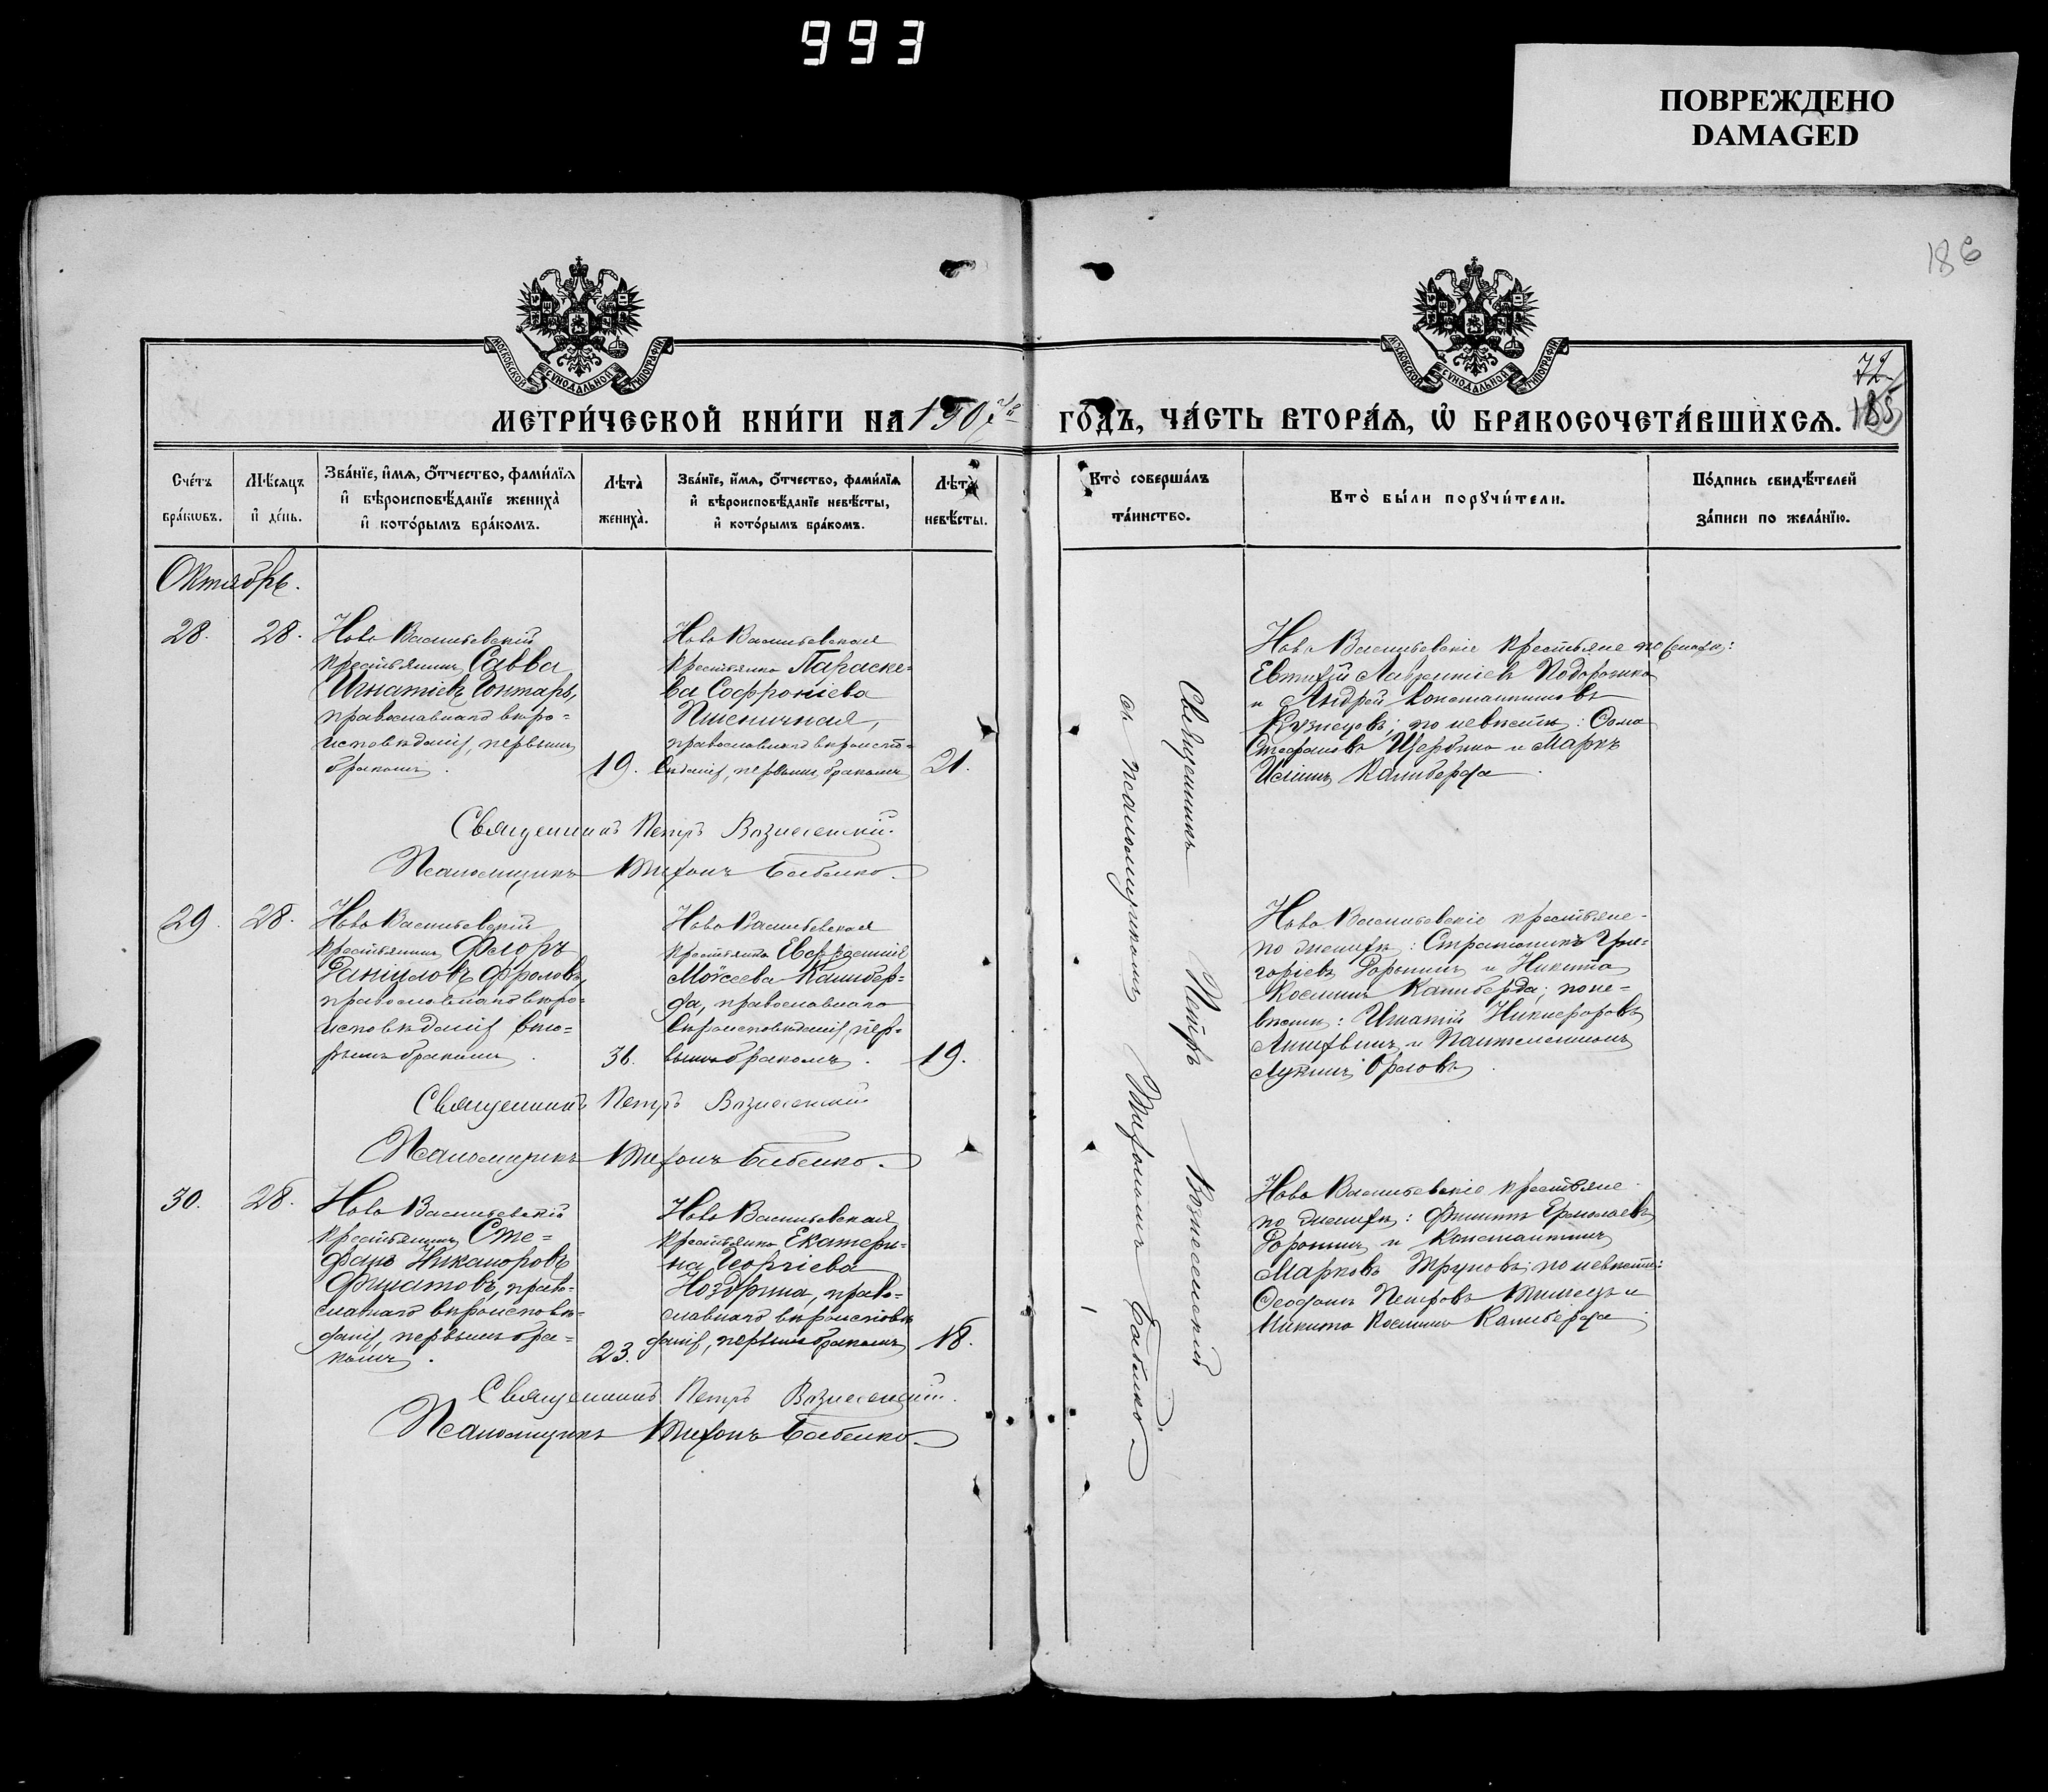 993
ПОВРЕЖДЕНО
DAMAGED
186
72
185
МОСКОВСКОЙ СѴНОДАЛЬНОЙ ТИПОГРАФІИ
МОСКОВСКОЙ СѴНОДАЛЬНОЙ ТИПОГРАФІИ
МЕТРИ́ЧЕСКОЙ КНИ́ГИ НА 1907й ГО́ДЪ, ЧА́СТЬ ВТОРА́Ѧ, Ѡ҆ БРАКОСОЧЕТА́ВШИХСѦ.
Сче́тъ бра́кѡвъ.
Мѣ́сяцъ и҆ де́нь.
Зва́нїе, и҆́мѧ, ѻ҆́тчество, фами́лїѧ
и҆ вѣроисповѣ́данїе жениха̀
и҆ кото́рымъ бра́комъ.
Лѣта̀ жениха̀.
Зва́нїе, и҆́мѧ, ѻ҆́тчество, фами́лїѧ
и҆ вѣроисповѣ́данїе невѣ́сты,
и҆ кото́рымъ бра́комъ.
Лѣта̀ невѣ́сты.
Кто̀ соверша́лъ та́инство.
Кто̀ бы́ли порꙋчи́тели.
По́дпись свидѣ́телей
за́писи по жела́нїю.
Октябрь.
28.
28.
Ново Васильевскій
крестьянинъ Савва
Игнатіевъ Гонтарь,
православнаго вѣро=
исповѣданія, первымъ
бракомъ.
19.
Ново Васильевская
крестьянка Параске=
ва Софроніева
Пшеничная,
православнаго вѣроиспо=
вѣданія, первымъ бракомъ
21.
Ново Васильевскіе крестьяне по женихѣ:
Евтихій Лаврентіевъ Подорожко
и Андрей Константиновъ
Кузнецовъ; по невѣстѣ: Ѳома
Стефановъ Щербина и Маркъ
Исаінъ Калиберда.
Священникъ Петръ Вознесенскій.
Псаломщикъ Тихонъ Бабенко.
29.
28.
Ново Васильевскій
крестьянинъ Флоръ
Даніиловъ Фроловъ,
православнаго вѣро=
исповѣданія вто=
рымъ бракомъ.
36.
Ново Васильевская
крестьянка Евфросинія
Моѵсеева Калибер=
да, православнаго
вѣроисповѣданія, пер=
вымъ бракомъ.
19.
Ново Васильевскіе крестьяне
по женихѣ: Стратоникъ Гри=
горіевъ Доронинъ и Никита
Косминъ Калиберда; по не=
вѣстѣ: Игнатій Никифоровъ
и Пантелеимонъ
Лукинъ Орловъ.
Священникъ Петръ Вознесенскій
Псаломщикъ Тихонъ Бабенко.
30.
28.
Ново Васильевскій
крестьянинъ Сте=
фанъ Никаноровъ
Филатовъ, право=
славнаго вѣроисповѣ=
данія, первымъ бра=
комъ.
23.
Ново Васильевская
крестьянка Екатери=
на Георгіева
Ноздрина, право=
славнаго вѣроисповѣ
данія, первымъ бракомъ
18.
Ново Васильевскіе крестьяне
по женихѣ: Филиппъ Ермолаевъ
Доронинъ и Константинъ
Марковъ Труновъ; по невѣстѣ:
Ѳеофанъ Петровъ и
Никита Косминъ Калиберда
Священникъ Петръ Вознесенскій.
Псаломщикъ Тихонъ Бабенко.
Священникъ Петръ Вознесенскій
съ псаломщикомъ Тихономъ Бабенко.